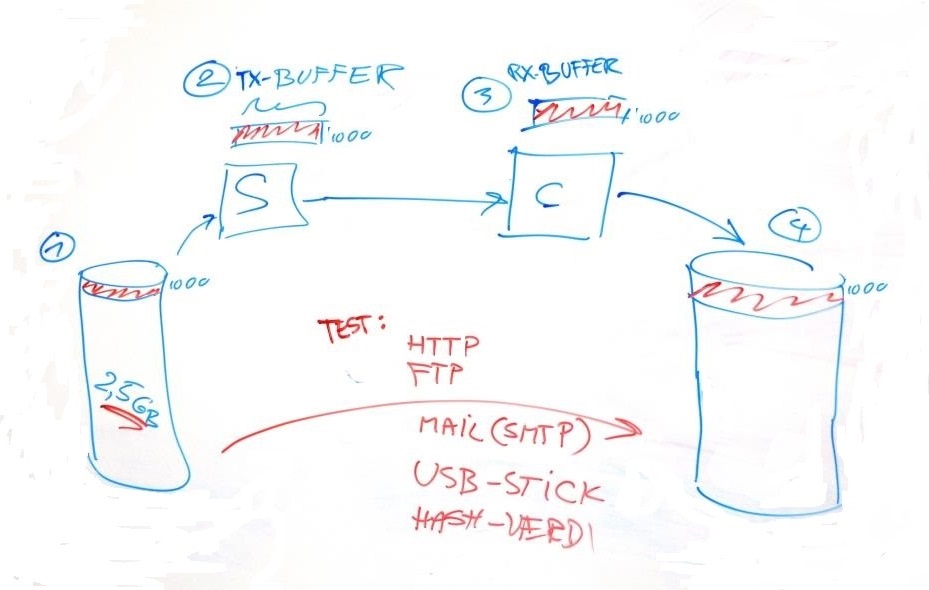 2 TX-BUFFER
1000
3 RX-BUFFER
1000
S
C
1
1000
4
1000
2,5GB
TEST:
HTTP
FTP
MAIL (SMTP)
USB-STICK
HASH-VERDI